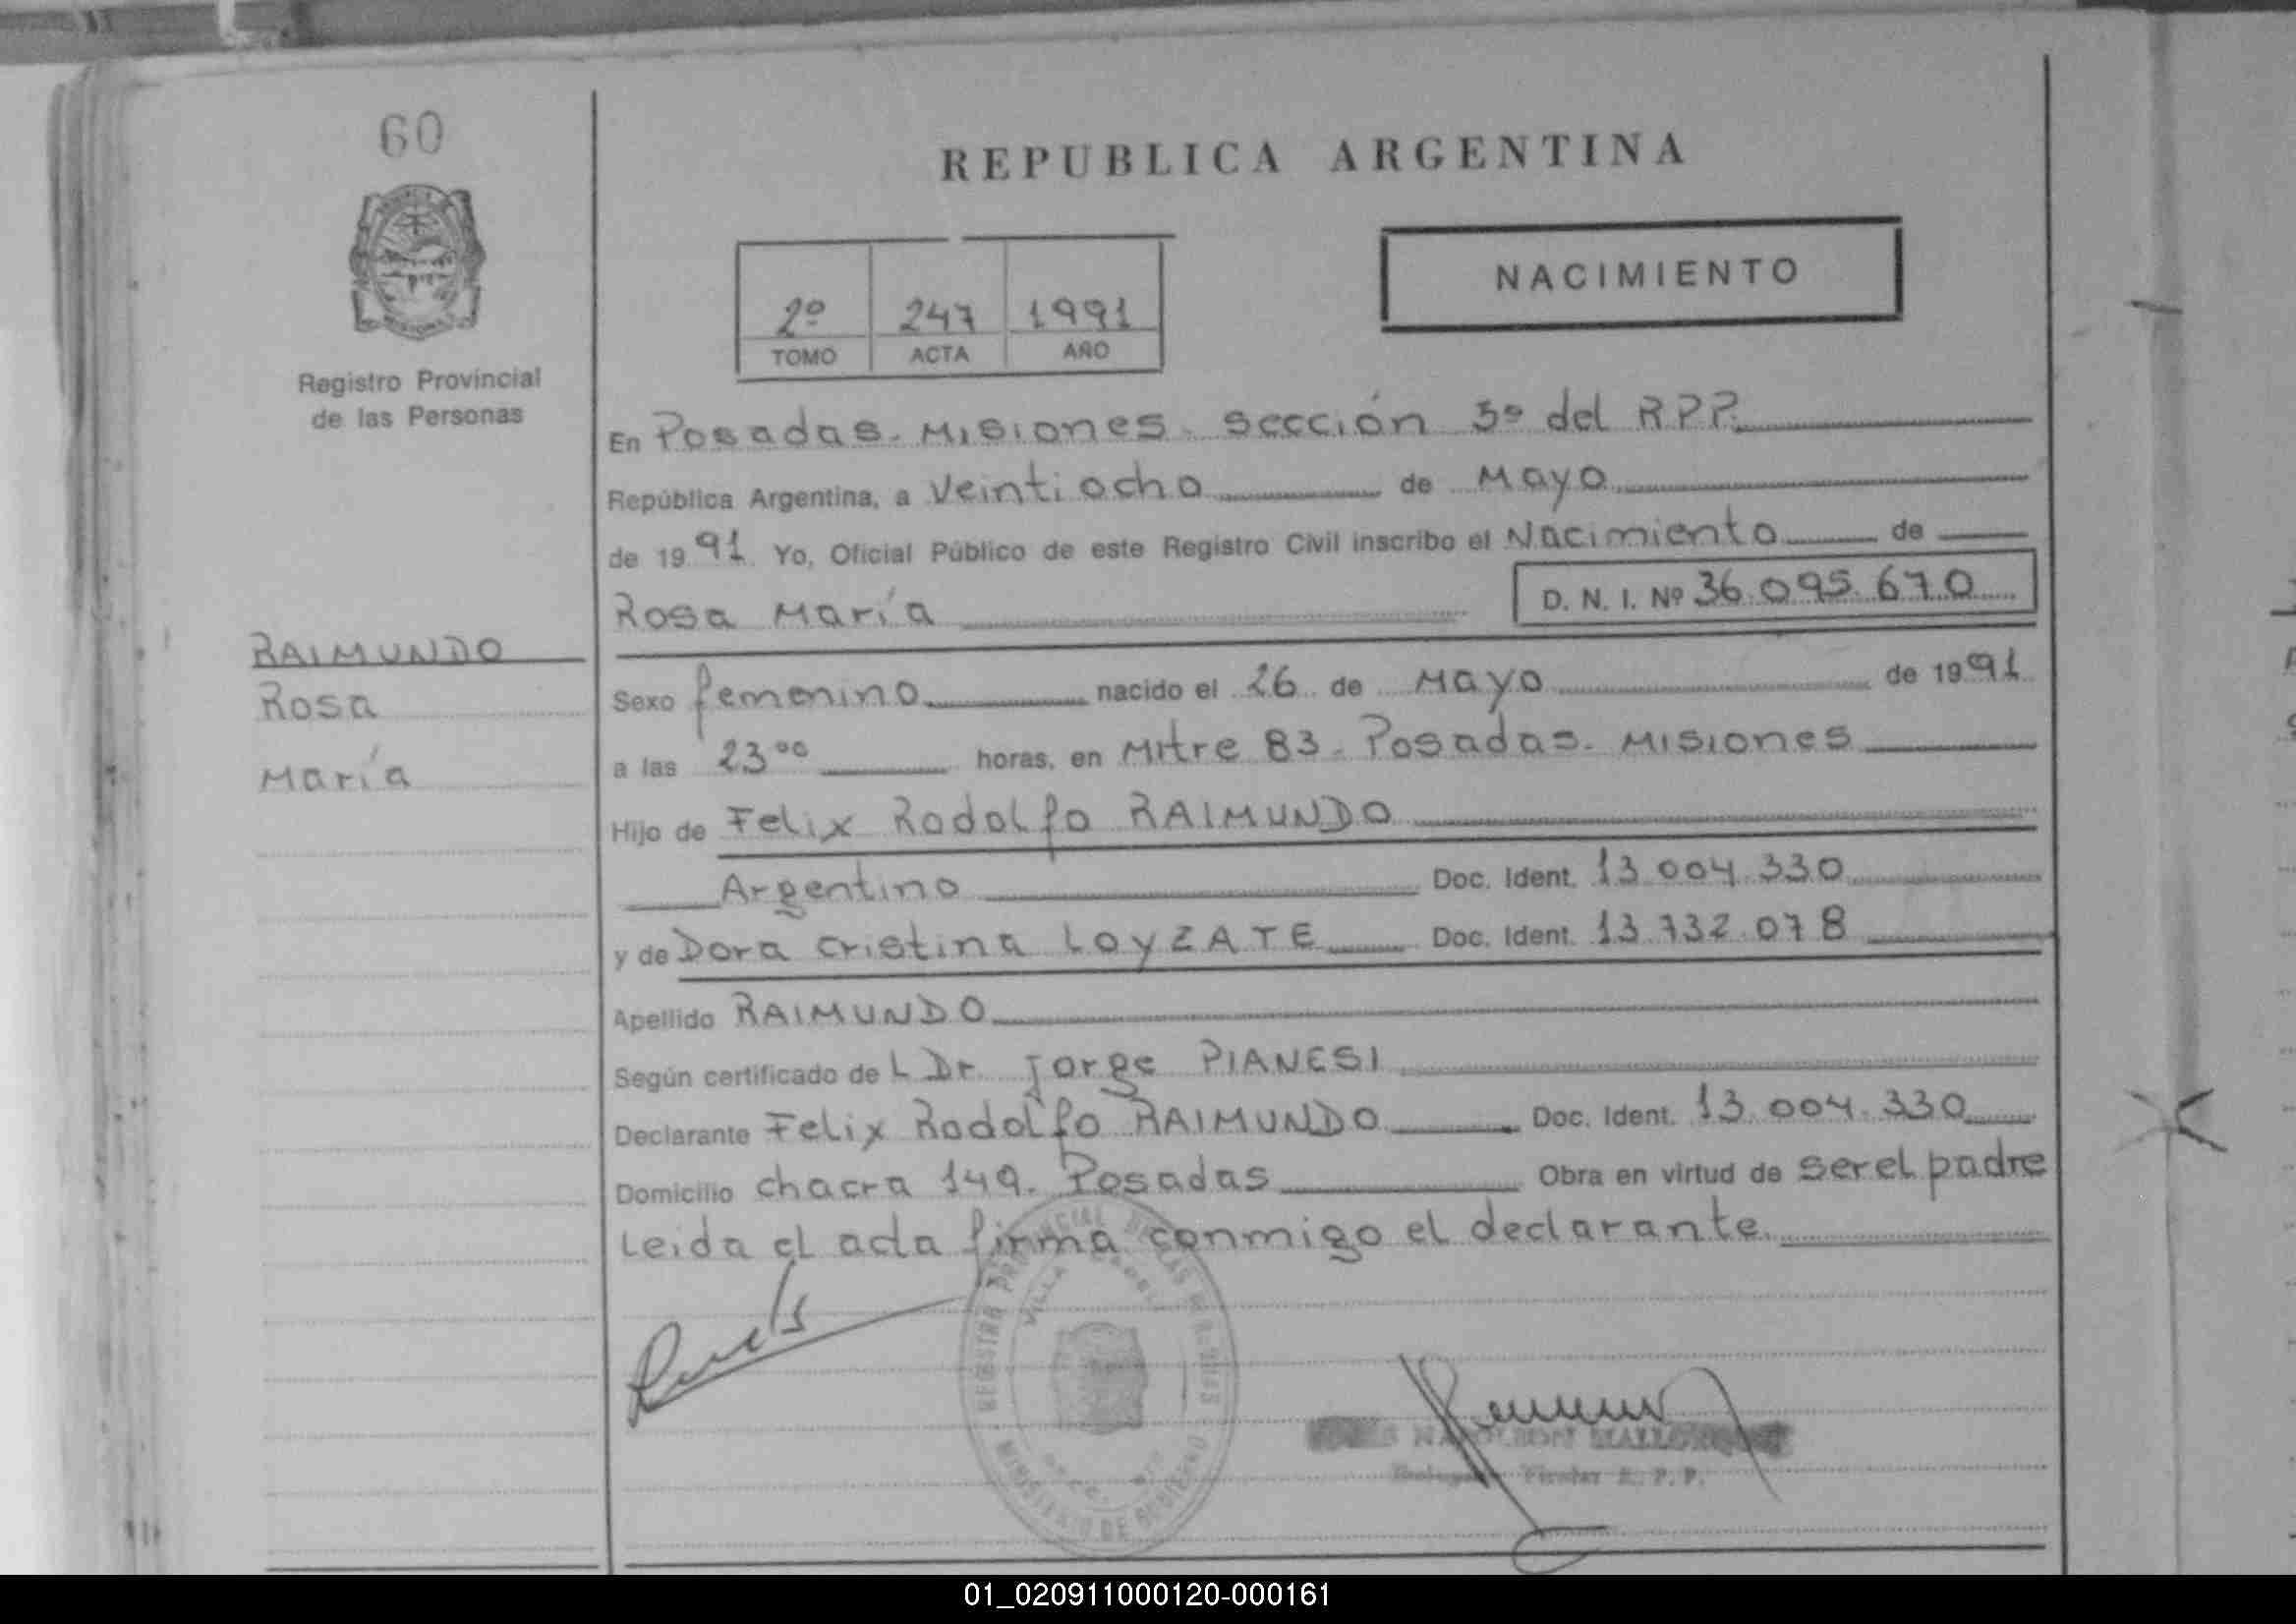 60
REPUBLICA ARGENTINA
NACIMIENTO
2º 247 1991
TOMO ACTA AÑO
Registro Provincial
de las Personas
En Posadas. Misiones. sección 5º del RPP.
República Argentina, a Veintiocho de Mayo
de 1991 Yo, Oficial Público de este Registro Civil inscribo el Nacimiento de
Rosa María D. N. I. Nº 36.095.670
RAIMUNDO
Rosa
María
Sexo femenino nacido el 26 de Mayo de 1991
a las 23⁰⁰ horas, en Mitre 83. Posadas. Misiones
Hijo de Felix Rodolfo RAIMUNDO
Argentino Doc. Ident. 13.004.330
y de Dora Cristina LOYZATE Doc. Ident. 13.732.078
Apellido RAIMUNDO
Según certificado de L Dr. Jorge PIANESI
Declarante Felix Rodolfo RAIMUNDO Doc. Ident. 13.004.330
Domicilio chacra 149. Posadas Obra en virtud de ser el padre
Leida el acta firma conmigo el declarante.
REGISTRO PROVINCIAL DE LAS PERSONAS
VILLA
MINISTERIO DE GOBIERNO
NAPOLEON
Titular R. P. P.
01_020911000120-000161